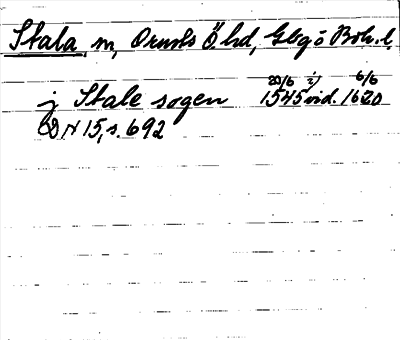 Stala sn, Orusts Ö hd, Gbg o Boh. l.
j Stale sogen 20/6 1545 vid. 6/6 1620
DN 15, s. 692